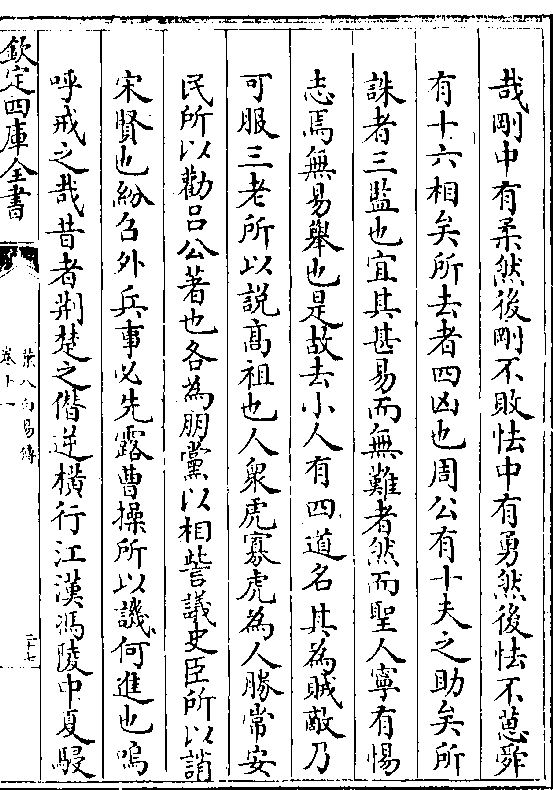 哉剛中有柔然後剛不敗怯中有勇然後怯不葸舜
有十六相矣所去者四凶也周公有十夫之助矣所
誅者三監也宜其甚易而無難者然而聖人寧有惕
志焉無易舉也是故去小人有四道名其為賊敵乃
可服三老所以説髙祖也人衆虎寡虎為人勝常安
民所以勸吕公著也各為朋黨以相訾議史臣所以誚
宋賢也紛召外兵事必先露曹操所以譏何進也嗚
呼戒之哉昔者荆楚之僭逆橫行江漢馮陵中夏駸
欽定四庫全書
葉八白易傳
卷十一
三十七